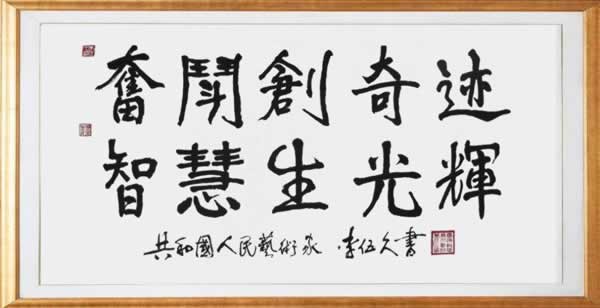 奮鬪創奇迹
智慧生光輝
共和國人民藝術家 李伍久書